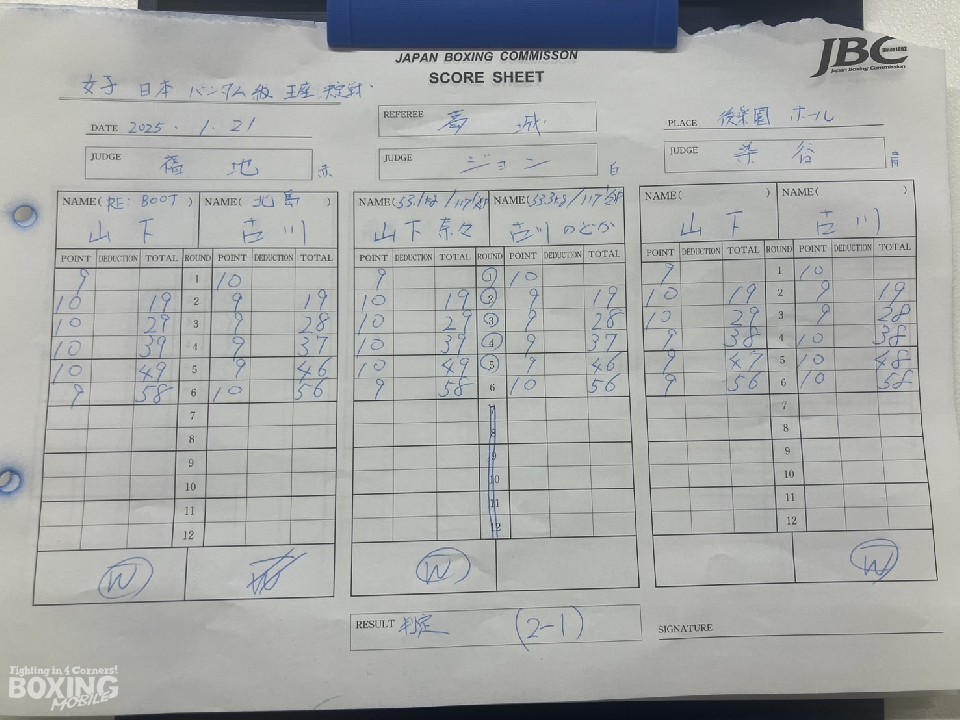 JAPAN BOXING COMMISSON
SCORE SHEET
JBC
Japan Boxing Commission
女子 日本 バンタム級 王座決定戦
DATE 2025. 1. 21
REFEREE
PLACE 後楽園 ホール
JUDGE 福地 赤
JUDGE ジョン 白
JUDGE 染谷 青
NAME( RE:BOOT ) NAME( 北島 )
山下 古川
POINT DEDUCTION TOTAL ROUND POINT DEDUCTION TOTAL
9 1 10
10 19 2 9 19
10 29 3 9 28
10 39 4 9 37
10 49 5 9 46
9 58 6 10 56
7
8
9
10
11
12
W
NAME( NAME(
山下奈々 古川のどか
POINT DEDUCTION TOTAL ROUND POINT DEDUCTION TOTAL
9 1 10
10 19 2 9 19
10 29 3 9 28
10 39 4 9 37
10 49 5 9 46
9 58 6 10 56
7
8
9
10
11
12
W
NAME( ) NAME( )
山下 古川
POINT DEDUCTION TOTAL ROUND POINT DEDUCTION TOTAL
9 1 10
10 19 2 9 19
10 29 3 9 28
9 38 4 10 38
9 47 5 10 48
9 56 6 10 58
7
8
9
10
11
12
W
RESULT 判定 (2-1)
SIGNATURE
Fighting in 4 Corners!
BOXING
MOBILE